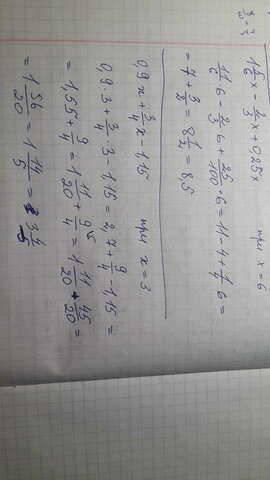 1 5/6 x - 2/3 x + 0,25x при x = 6
11/6 · 6 - 2/3 · 6 + 25/100 · 6 = 11 - 4 + 1/4 · 6 =
= 7 + 3/2 = 8 1/2 = 8,5
0,9x + 3/4 x - 1,15 при x = 3
0,9 · 3 + 3/4 · 3 - 1,15 = 2,7 + 9/4 - 1,15 =
= 1,55 + 9/4 = 1 11/20 + 9/4 = 1 11/20 + 45/20 =
= 1 56/20 = 1 14/5 = 3 4/5